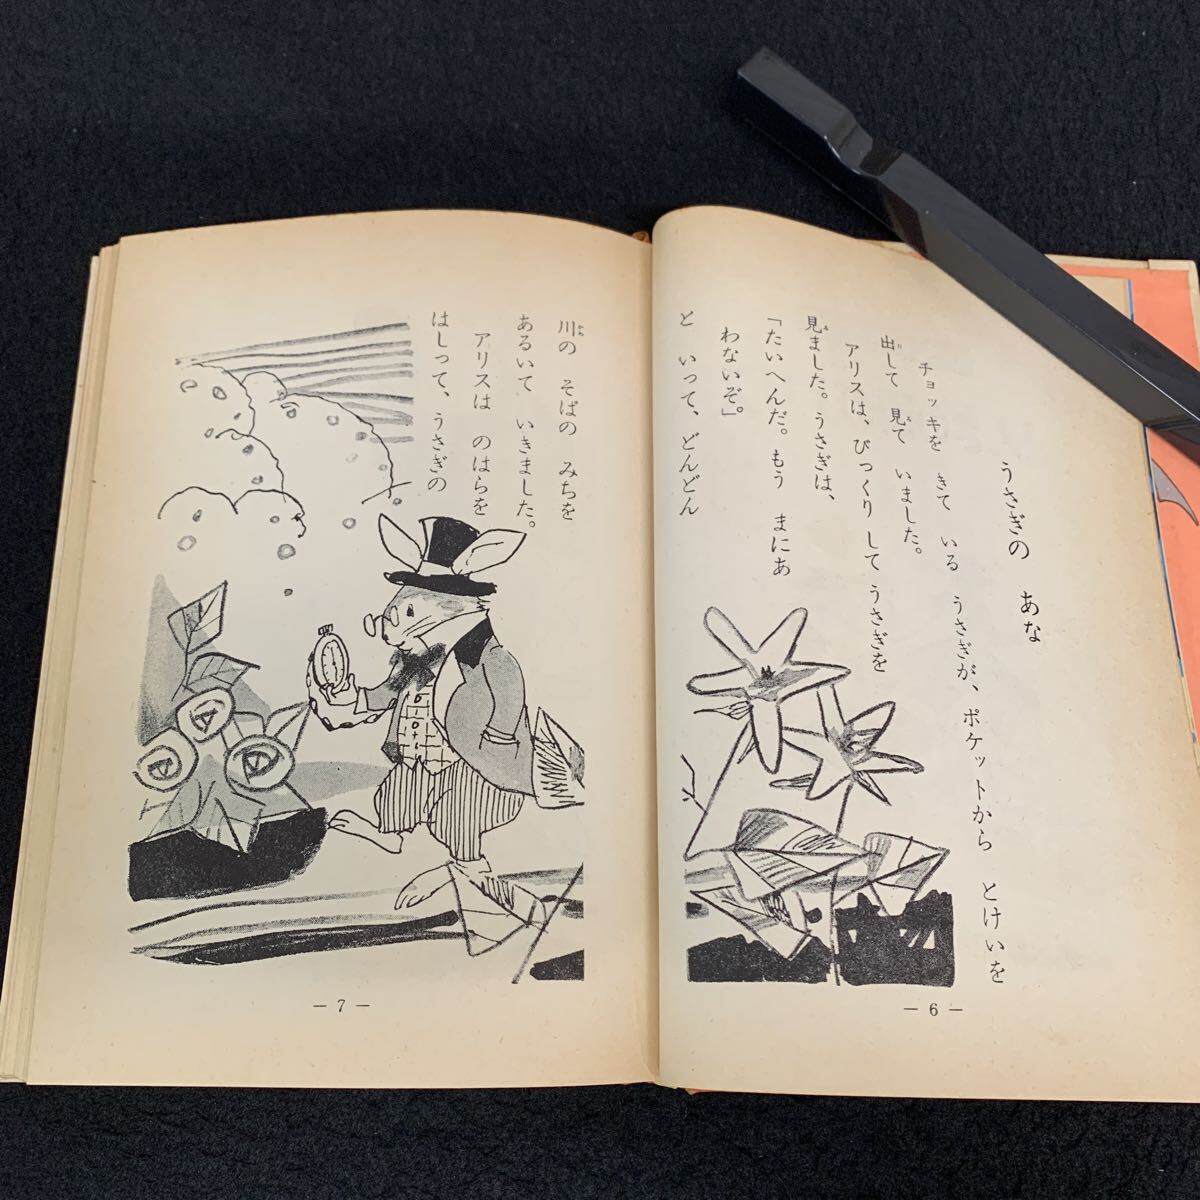 うさぎの あな
チョッキを きて いる うさぎが、ポケットから とけいを
出して 見て いました。
アリスは、びっくり して うさぎを
見ました。うさぎは、
「たいへんだ。もう まにあ
わないぞ。」
と いって、どんどん
— 6 —
川の そばの みちを
あるいて いきました。
アリスは のはらを
はしって、うさぎの
— 7 —